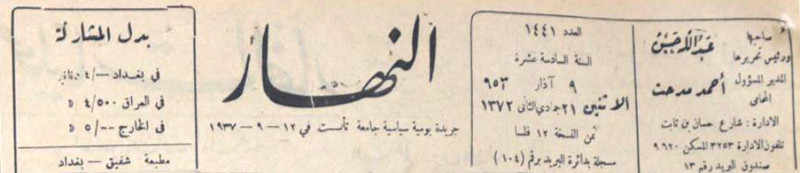 صاحبها
ورئيس تحريرها
عبدالله حسن
المدير المسؤول
المحامي
أحمد مدحت
الادارة : شارع حسان بن ثابت
تلفون الادارة ٣٢٥٣ المسكن ٩٦٢٠
صندوق البريد رقم ١٣
العدد ١٤٤١
السنة السادسة عشرة
٩ آذار ٩٥٣
الاثنين ٢١ جمادي الثاني ١٣٧٢
ثمن النسخة ١٢ فلسا
مسجلة بدائرة البريد برقم (١٠٤)
النهار
جريدة يومية سياسية جامعة تأسست في ١٢ - ٩ - ١٩٣٧
بدل المشاركة
في بغداد ٤/٠٠٠ دنانير
في العراق ٤/٥٠٠ »
في الخارج ٥/٠٠٠ »
مطبعة شفيق - بغداد